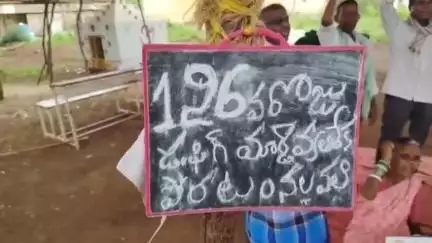 126 వ రోజు
డంపింగ్ యార్డ్ వ్యతిరేక
పోరాటం నల్లవల్లి